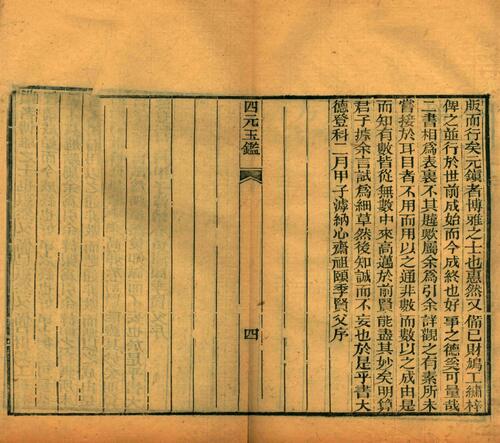 版而行矣元鎭者博雅之士也惠然又備己財鳩工繡梓
俾之並行於世前成始而今成終也好事之德奚可量哉
二書相爲表裏不其韙歟屬余爲引余詳觀之有素所未
嘗接於耳目者不用而用以之通非數而數以之成由是
而知有數皆從無數中來高邁於前賢能盡其妙矣明算
君子據余言試爲細草然後知誠而不妄也於是乎書大
德登科二月甲子滹納心齋祖頤季賢父序
四元玉鑑
四